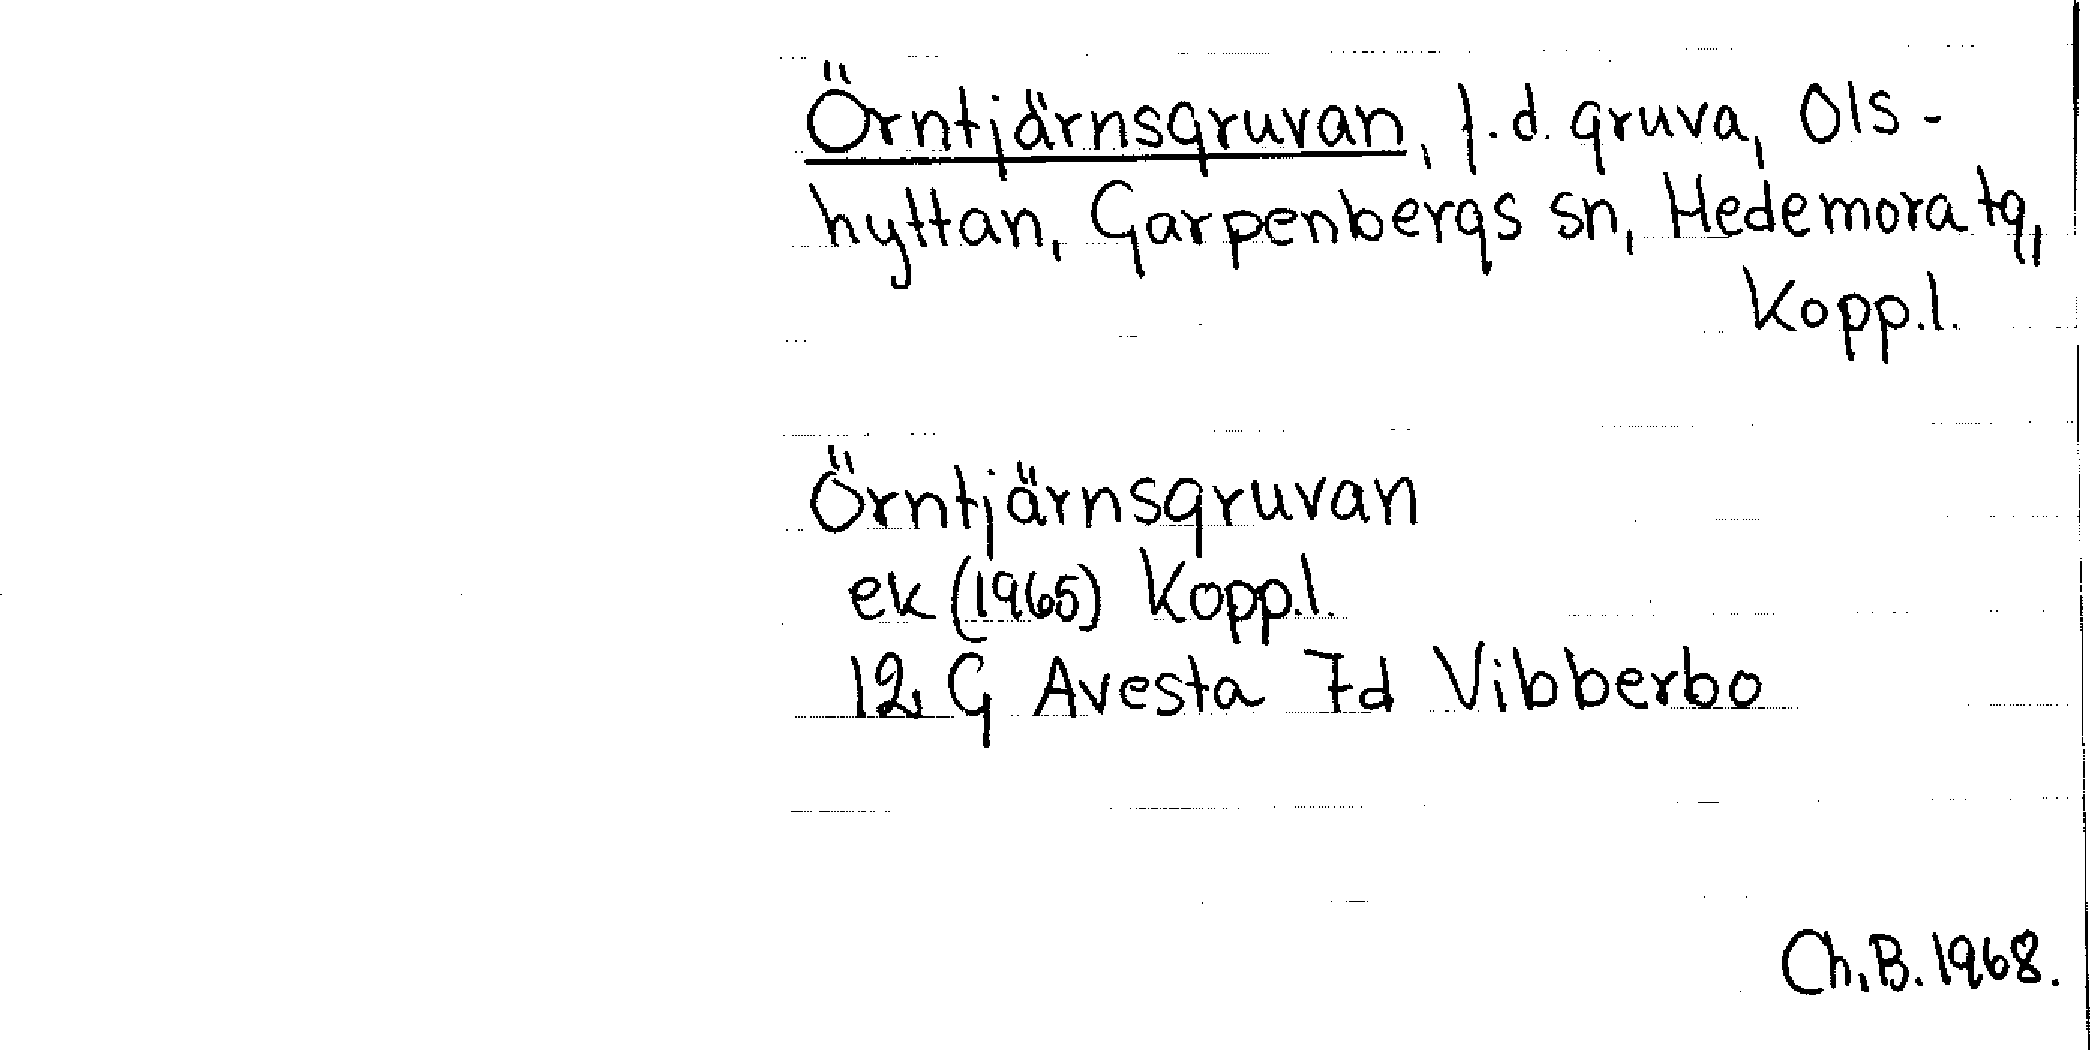 Örntjärnsgruvan, f.d. gruva, Ols-
hyttan, Garpenbergs sn, Hedemora tg,
Kopp.l.
Örntjärnsgruvan
ek (1965) Kopp.l.
12 G Avesta 7d Vibberbo
Ch.B. 1968.